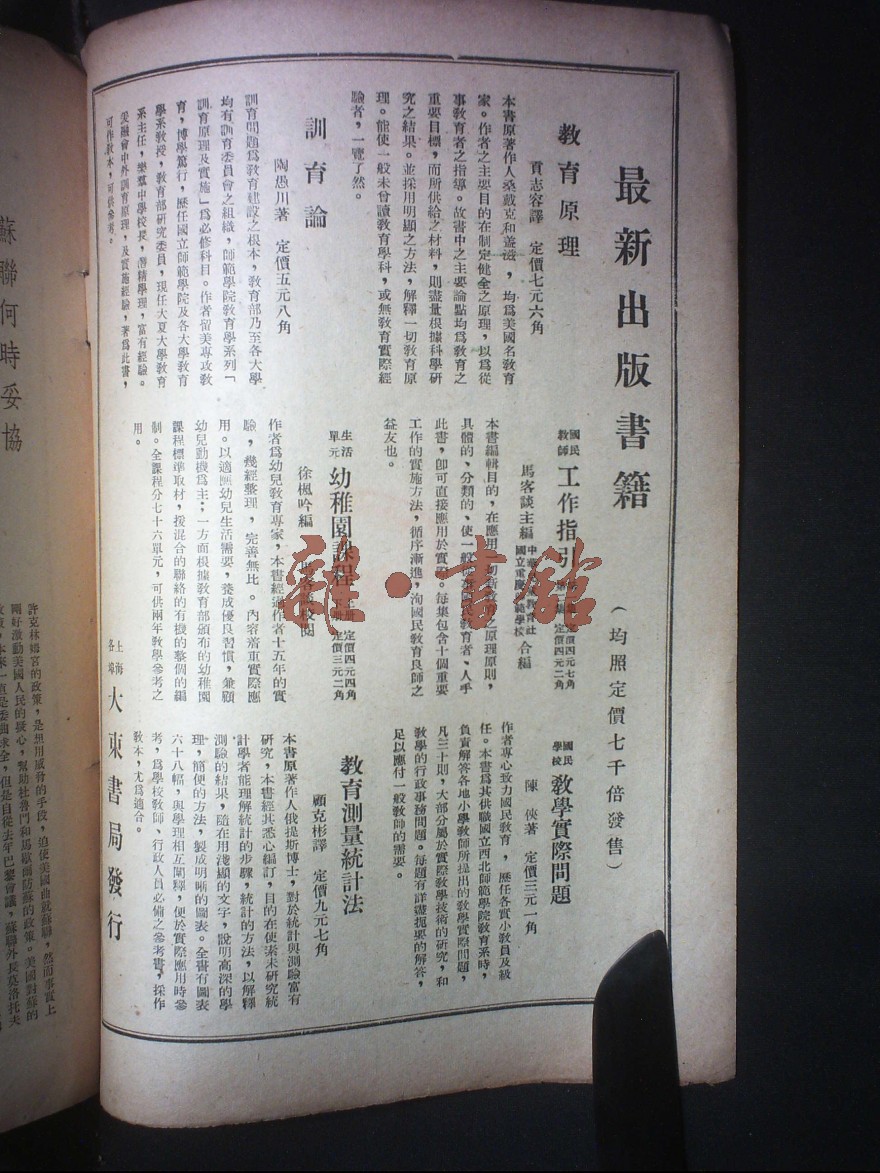 最新出版書籍
（均照定價七千倍發售）
教育原理
貢志容譯　定價七元六角
本書原著作人桑戴克和蓋滋，均為美國名教育
家。作者之主要目的在制定健全之原理，以為從
事教育者之指導。故書中之主要論點均為教育之
重要目標，而所供給之材料，則盡量根據科學研
究之結果。並採用明顯之方法，解釋一切教育原
理。能使一般未曾讀教育學科，或無教育實際經
驗者，一覽了然。
訓育論
陶愚川著　定價五元八角
訓育問題為教育建設之根本，教育部乃至各大學
均有訓育委員會之組織，師範學院教育學系列「
訓育原理及實施」為必修科目。作者留美專攻教
育，博學篤行，歷任國立師範學院及各大學教育
學系教授，教育部研究委員，現任大夏大學教育
系主任，樂羣中學校長，潛精學理，富有經驗。
爰融會中外訓育原理，及實施經驗，著為此書，
可作教本，可供參考。
國民教師　工作指引
定價四元七角
定價四元二角
馬客談主編
國立重慶師範學校
合編
本書編輯目的，在應用一切活教育之原理原則，
具體的、分類的、使一般從事國民教育者、人手
此書，卽可直接應用於實際。每集包含十個重要
工作的實施方法，循序漸進，洵國民教育良師之
益友也。
生活單元　幼稚園課程
上冊　定價四元四角
下冊　定價三元二角
徐楓吟編
校閱
作者為幼兒教育專家，本書經過作者十五年的實
驗，幾經整理，完善無比。內容着重實際應
用。以適應幼兒生活需要，養成優良習慣，兼顧
幼兒動機為主；一方面根據教育部頒布的幼稚園
課程標準取材，援混合的聯絡的有機的整個的編
制。全課程分七十六單元，可供兩年教學參考之
用。
國民學校　教學實際問題
陳俠著　定價三元一角
作者專心致力國民教育，歷任各實小教員及級
任。本書為其供職國立西北師範學院教育系時，
負責解答各地小學教師所提出的教學實際問題，
凡三十則，大部分屬於實際教學技術的研究，和
教學的行政事務問題。每題有詳盡扼要的解答，
足以應付一般教師的需要。
教育測量統計法
顧克彬譯　定價九元七角
本書原著作人俄提斯博士，對於統計與測驗富有
研究，本書經其悉心編訂，目的在使素未研究統
計學者能理解統計的步驟，統計的方法，以解釋
測驗的結果，隨在用淺顯的文字，說明高深的學
理，簡便的方法，製成明晰的圖表。全書有圖表
六十八幅，與學理相互闡釋，便於實際應用時參
考，為學校教師、行政人員必備之參考書，採作
教本，尤為適合。
上海各埠　大東書局發行
龍・書館
蘇聯何時妥協
許克林姆宮的政策，是想用威脅的手段，迫使美國曲就蘇聯，然而事實上
剛好激動美國人民的疑心，幫助杜魯門和馬歇爾防蘇的政策。美國對蘇的
政策，本來一直是委曲求全，但是自從去年巴黎會議，蘇聯外長莫洛托夫